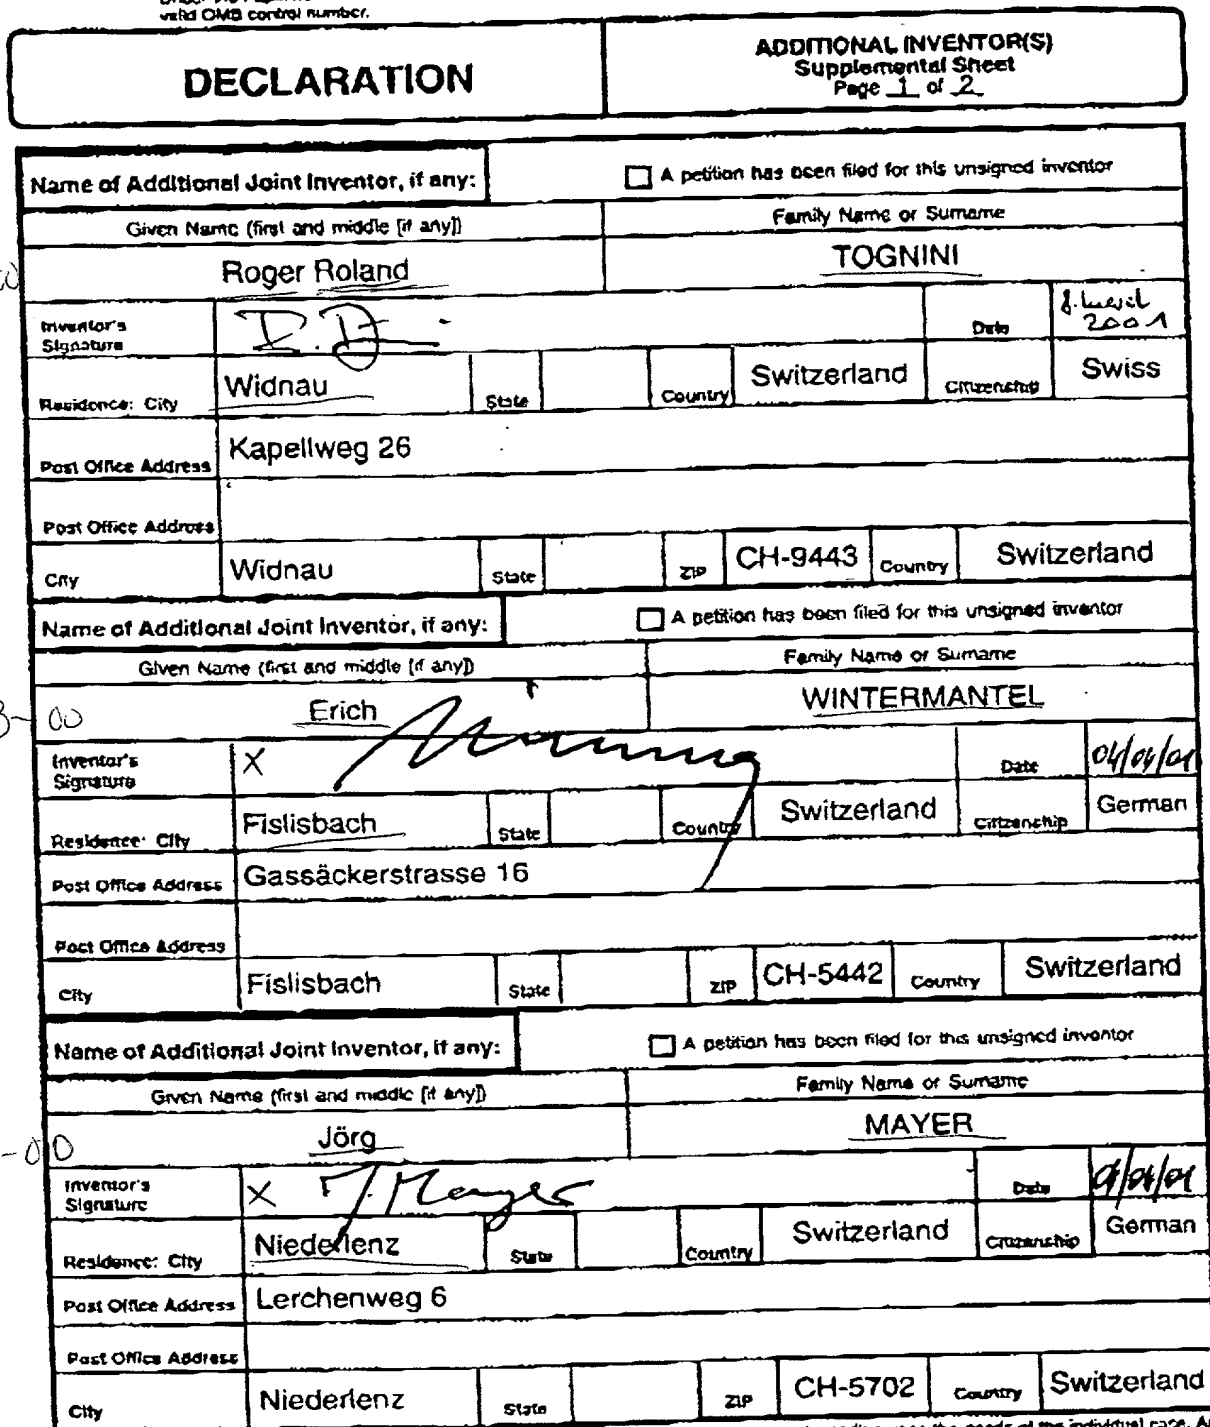 valid OMB control number.
DECLARATION
ADDITIONAL INVENTOR(S)
Supplemental Sheet
Page 1 of 2
Name of Additional Joint Inventor, if any:
A petition has been filed for this unsigned inventor
Given Name (first and middle [if any])
Family Name or Surname
Roger Roland
TOGNINI
Inventor's
Signature
Date
2001
Residence: City
Widnau
State
Country
Switzerland
Citizenship
Swiss
Post Office Address
Kapellweg 26
Post Office Address
City
Widnau
State
ZIP
CH-9443
Country
Switzerland
Name of Additional Joint Inventor, if any:
A petition has been filed for this unsigned inventor
Given Name (first and middle [if any])
Family Name or Surname
00
Erich
WINTERMANTEL
Inventor's
Signature
X
Date
04/04/01
Residence: City
Fislisbach
State
Country
Switzerland
Citizenship
German
Post Office Address
Gassäckerstrasse 16
Post Office Address
City
Fislisbach
State
ZIP
CH-5442
Country
Switzerland
Name of Additional Joint Inventor, if any:
A petition has been filed for this unsigned inventor
Given Name (first and middle [if any])
Family Name or Surname
-00
Jörg
MAYER
Inventor's
Signature
X J. Mayer
Date
Residence: City
Niederlenz
State
Country
Switzerland
Citizenship
German
Post Office Address
Lerchenweg 6
Post Office Address
City
Niederlenz
State
ZIP
CH-5702
Country
Switzerland